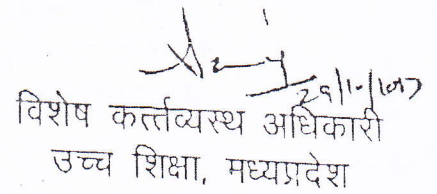 विशेष कर्त्तव्यस्थ अधिकारी
उच्च शिक्षा, मध्यप्रदेश